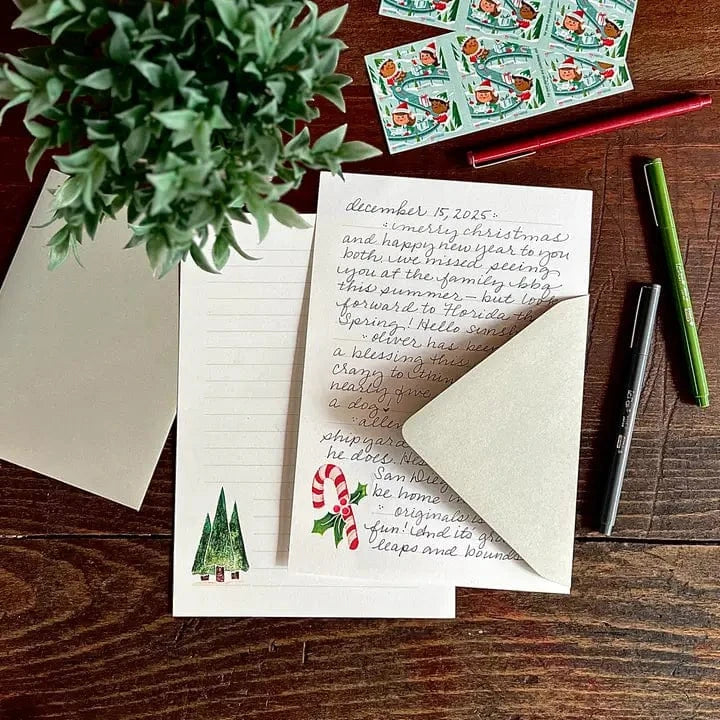 december 15, 2025 :
: merry christmas
and happy new year to you
both. we missed seeing
you at the family bbq
this summer – but look
forward to Florida
Spring! Hello
: oliver has
a blessing this
crazy to
nearly
a dog!
shipyard
he does.
San
be home
: originals
fun! And its
leaps and bounds